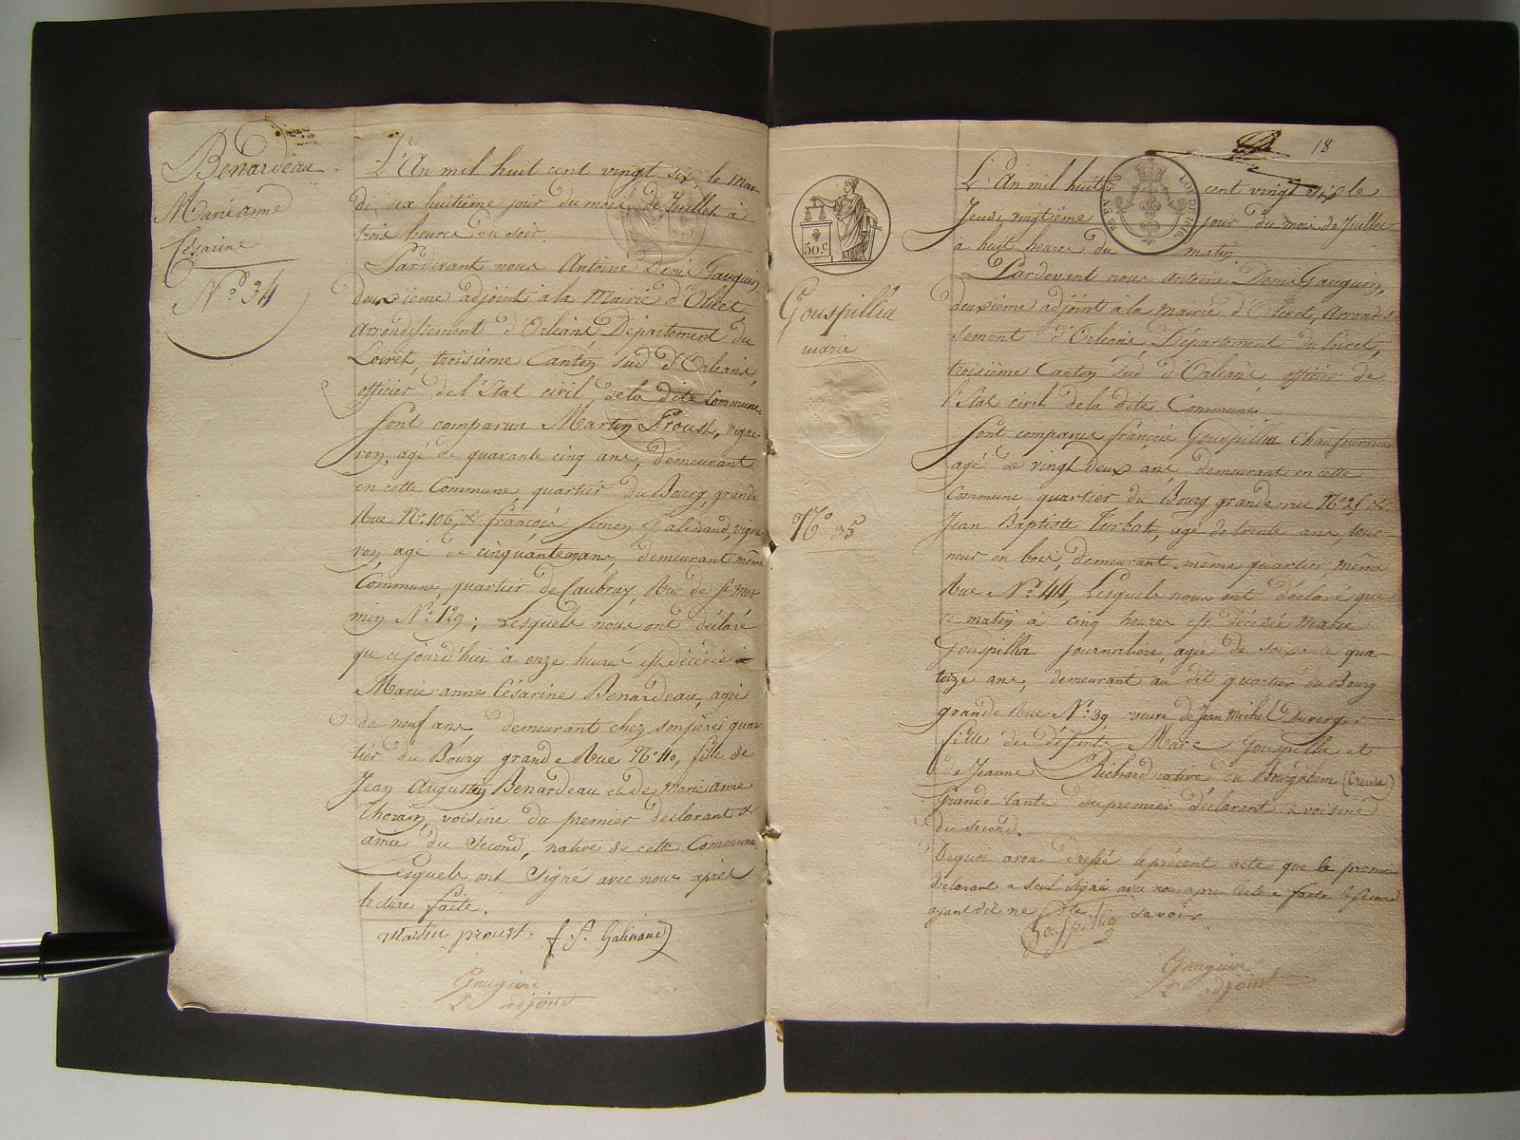 Benardeau
Marie anne
Césarine
N.º 34
L'An mil huit cent vingt six, le mar-
di dix huitième jour du mois de Juillet à
trois heures du soir.
Pardevant nous Antoine Denis Gauguin,
deuxième adjoint à la Mairie d'Olivet
Arrondissement d'Orléans Département du
Loiret, troisième Canton sud d'Orléans,
officier de l'Etat civil, de la dite Commune
Sont comparus Martin Proust, vigne-
ron, agé de quarante cinq ans, demeurant
en cette Commune, quartier du Bourg, grande
Rue N.º 106, & françois Galinand, vigne-
ron agé de cinquante ans, demeurant même
Commune, quartier de Caubray, Rue de St
min N.º 129; Lesquels nous ont déclaré
qu'aujourd'hui à onze heures est décédée
Marie anne Césarine Benardeau, agée
de neuf ans, demeurant chez son père quar-
tier du Bourg grande Rue N.º 40, fille de
Jean Augustin Benardeau et de Marie Anne
Thorain, voisine du premier déclarant &
amie du Second, native de cette Commune
Lesquels ont Signé avec nous après
lecture faite.
Martin proust. f. Galinand
Gauguin
adjoint
18
50.c
LOI DU
Gouspillia
marie
N.º 35
L'An mil huit cent vingt six le
Jeudi vingtième jour du mois de Juillet
à huit heures du matin
Pardevant nous Antoine Denis Gauguin,
deuxième adjoint à la mairie d'Olivet, Arrondis-
sement d'Orléans Département du Loiret,
troisième Canton sud d'Orléans officier de
l'Etat civil de la dite Commune
Sont comparus françois Gouspillia chaufournier
agé de vingt deux ans demeurant en cette
Commune quartier du Bourg grande rue N.º
Jean Baptiste Turbot, agé de trente ans tour-
neur en bois, demeurant même quartier, même
Rue N.º 44, Lesquels nous ont déclaré que
ce matin à cinq heures est décédée Marie
Gouspillia journalière, agée de soixante qua-
torze ans, demeurant au dit quartier du Bourg
grande Rue N.º 39 veuve de Jean Michel Duverger
fille des défunts Marc Gouspillia et
de Jeanne Richard native de (Creuse)
Grande tante du premier déclarant & voisine
du second.
Dequoi avons dressé le présent acte que le premier
déclarant a seul signé avec nous après lecture faite le second
ayant dit ne le savoir
Gouspillia
Gauguin
adjoint